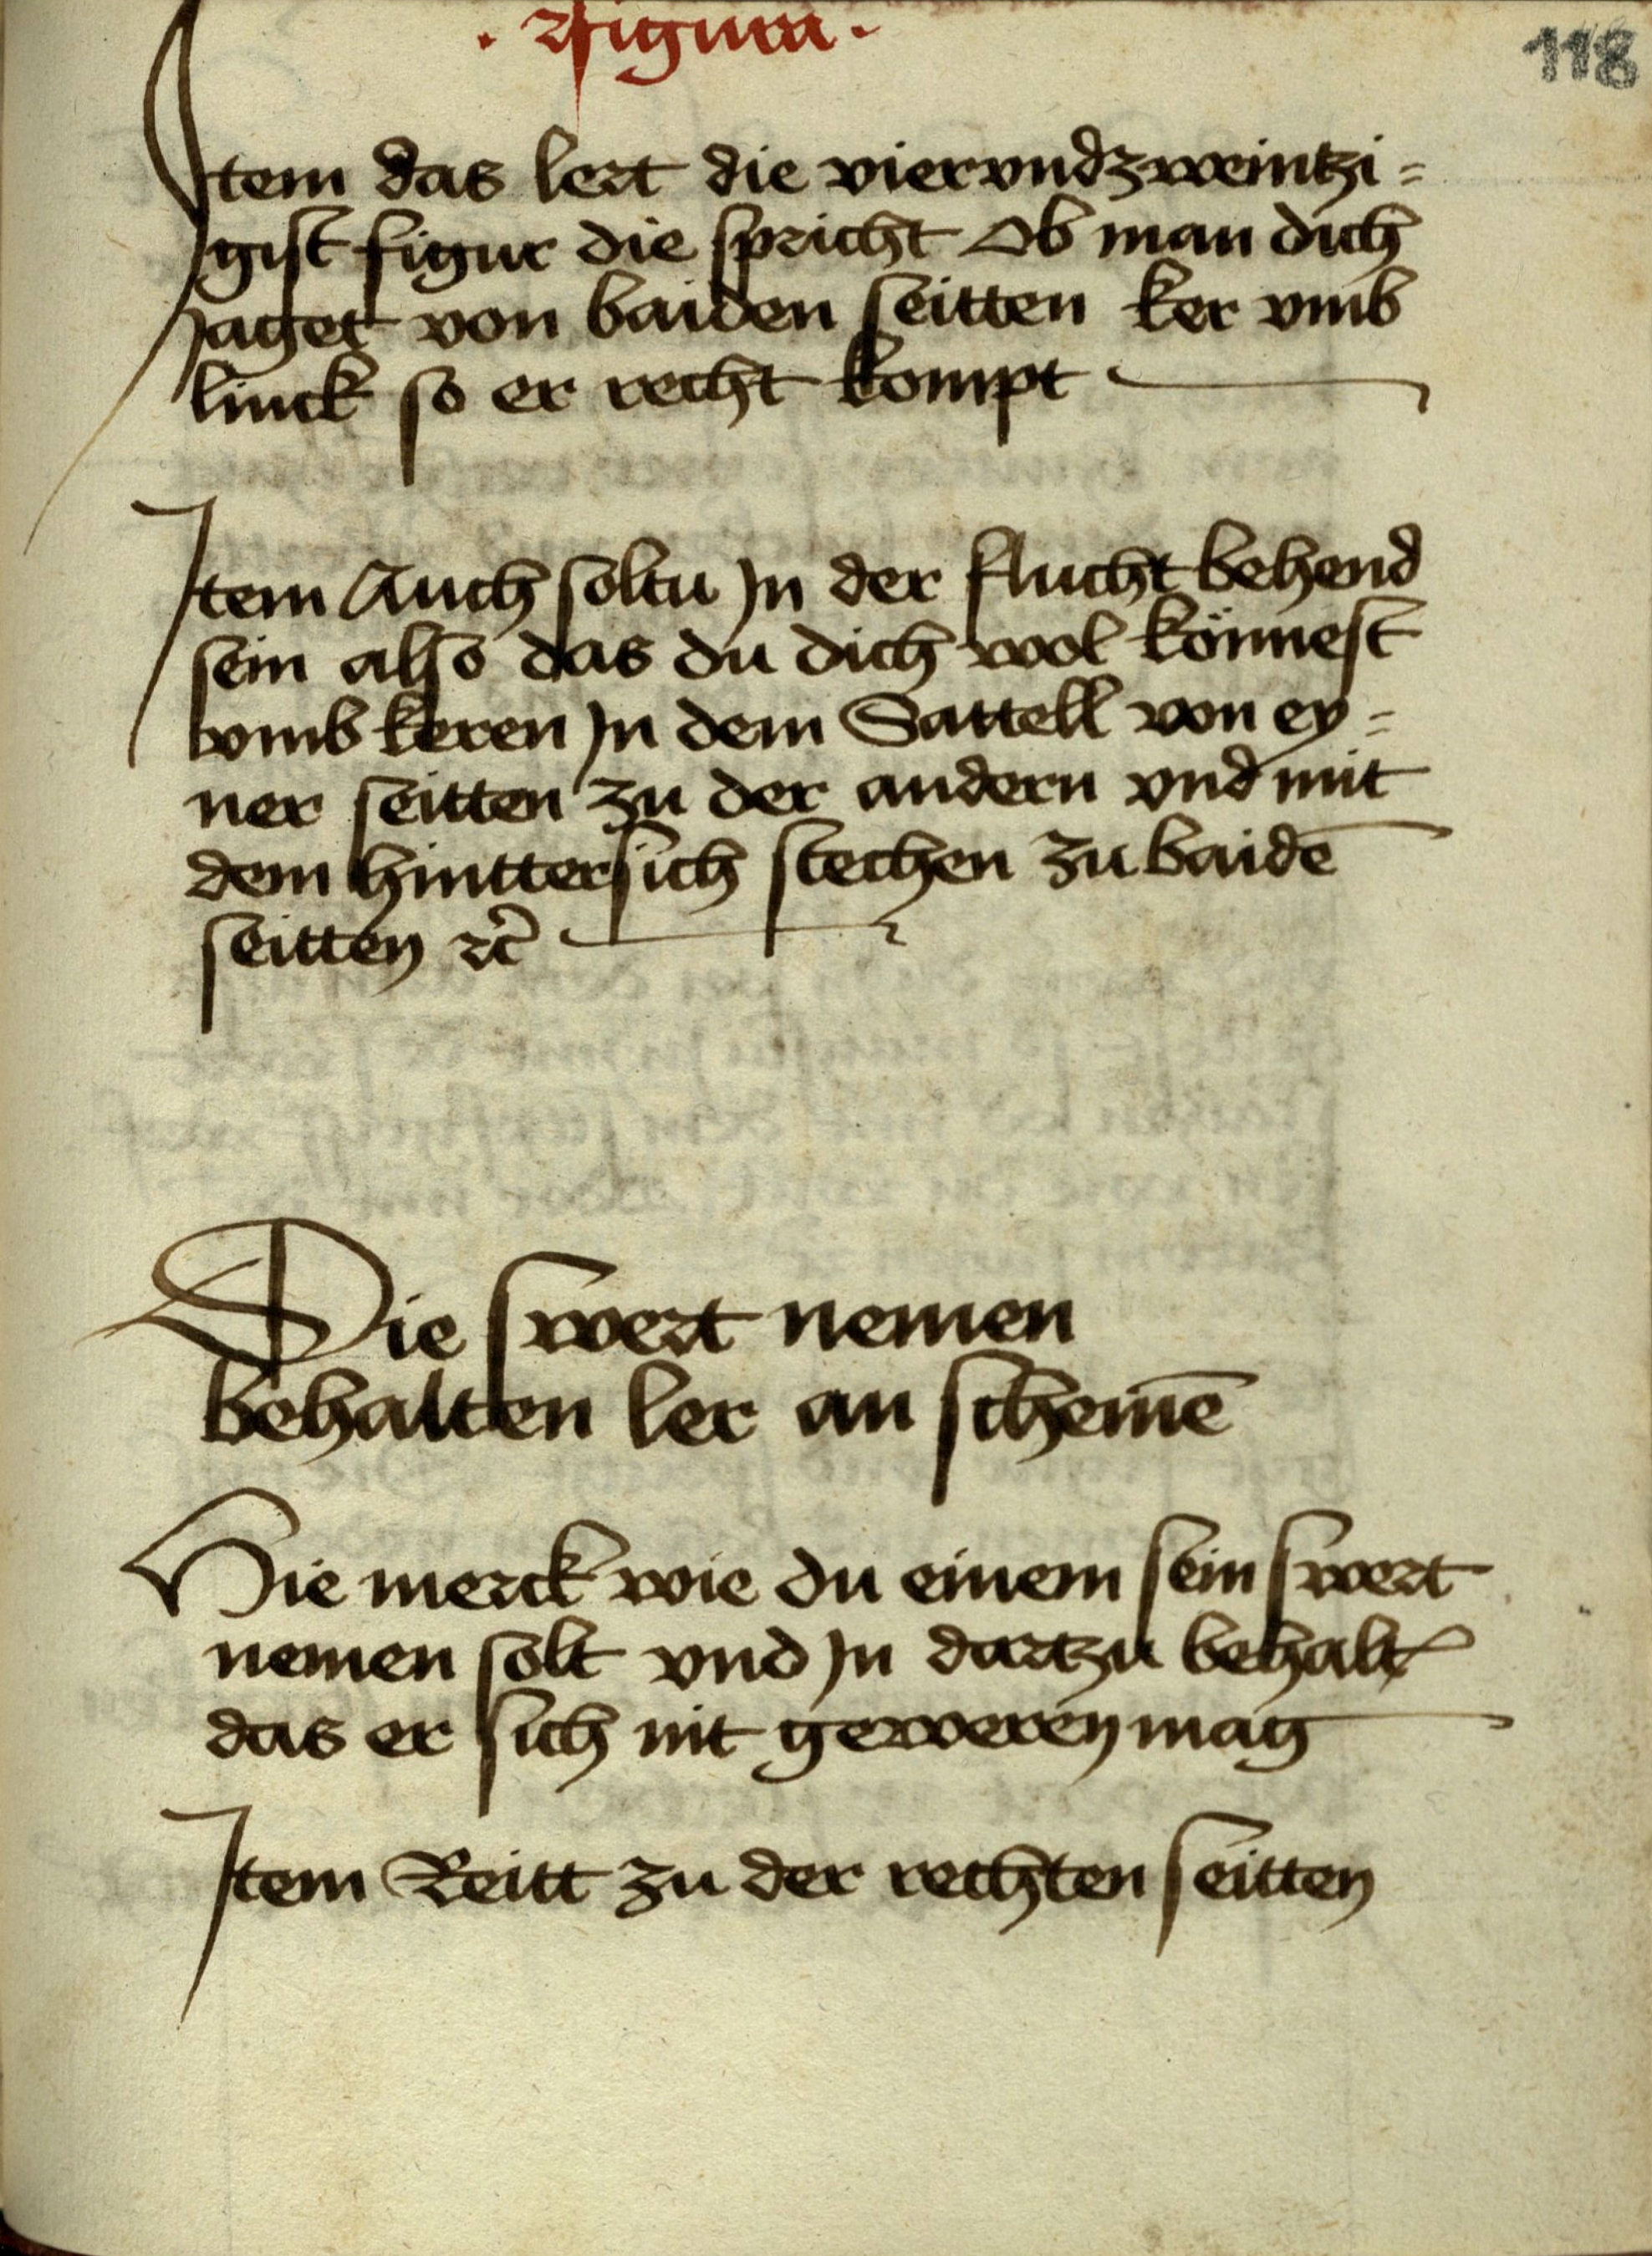 · Figura ·
118
Item das lert die vierundzweintzi=
gist figur die spricht Ob man dich
Jaget von baiden seitten ker vmb
linck so er recht kompt
Item Auch soltu Jn der flucht behend
sein also das du dich wol könnest
vmb keren Jn dem Sattell von ey=
ner seitten zu der andern vnd mit
dem hinttersich stechen zu baidē
seitten ꝛc̃
Die swert nemen
behalten ler an schemē
Hie merck wie du einem sein swert
nemen solt vnd Jn dartzu behalt
das er sich nit geweren mag
Item Reitt zu der rechten seitten